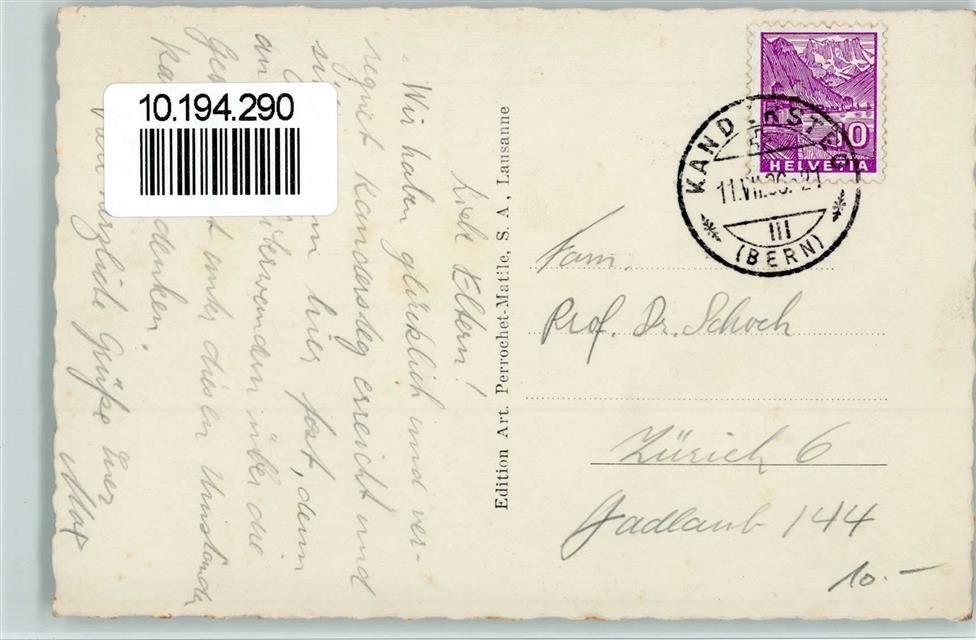 10.194.290
Liebe Eltern!
Wir haben glücklich und ver-
regnet Kandersteg erreicht und
hier fast, denn
an über die
Ge unter diesen Umständen
ka denken.
herzliche Grüße Euer
Max
Edition Art. Perrochet-Matile, S. A., Lausanne
10
HELVETIA
KANDERSTEG
11.VII.36.-21
III
(BERN)
Fam.
Prof. Dr. Schoch
Zürich 6
Hadlaub 144
10.-